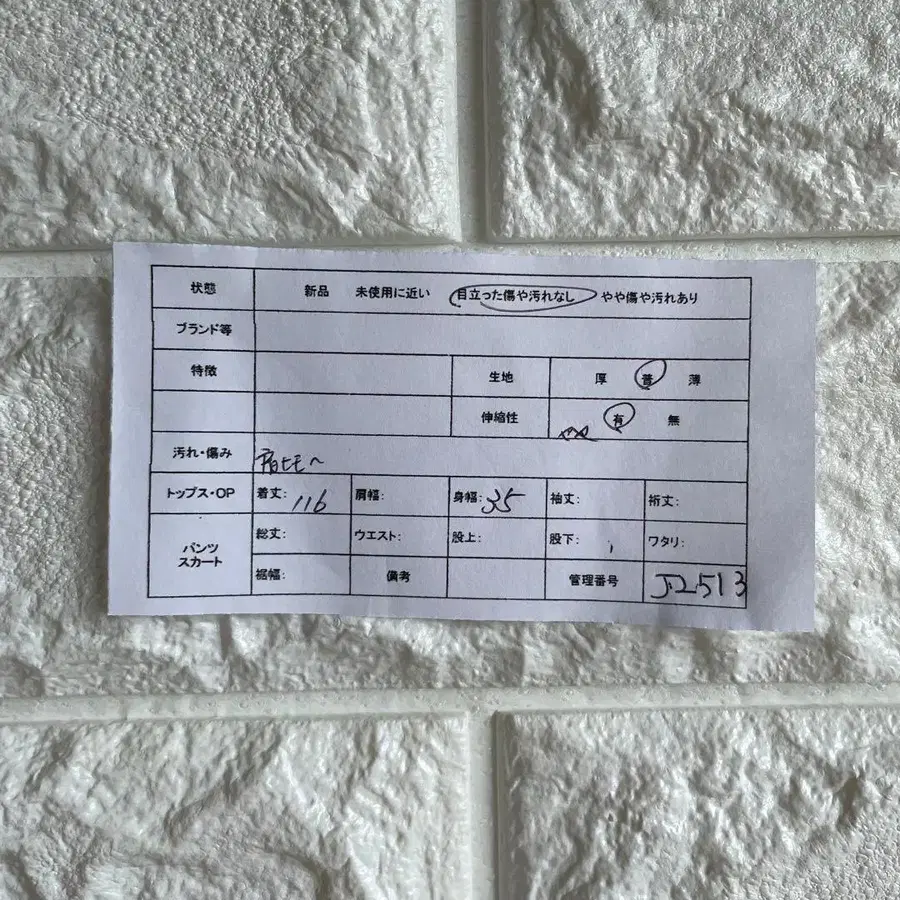 状態 新品 未使用に近い 目立った傷や汚れなし やや傷や汚れあり
ブランド等
特徴 生地 厚 普 薄
伸縮性 有 無
汚れ・傷み
トップス・OP 着丈: 116 肩幅: 身幅: 35 袖丈: 裄丈:
パンツ スカート 総丈: ウエスト: 股上: 股下: ワタリ:
裾幅: 備考 管理番号 J2513